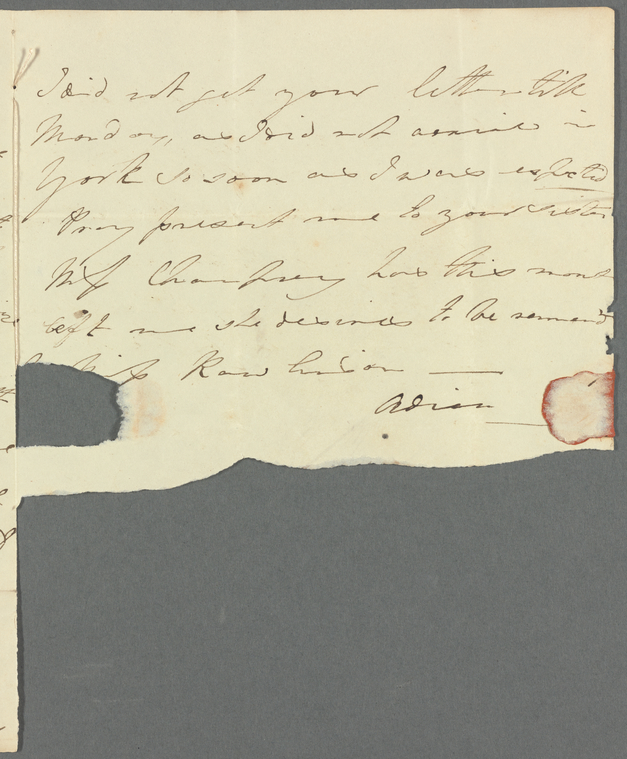 I did not get your letter till
Monday, as I did not arrive in
York so soon as I was expected
Pray present me to your sister
Miss has this mont
left me she desires to be remem'd
Miss Rawlinson —
Adieu